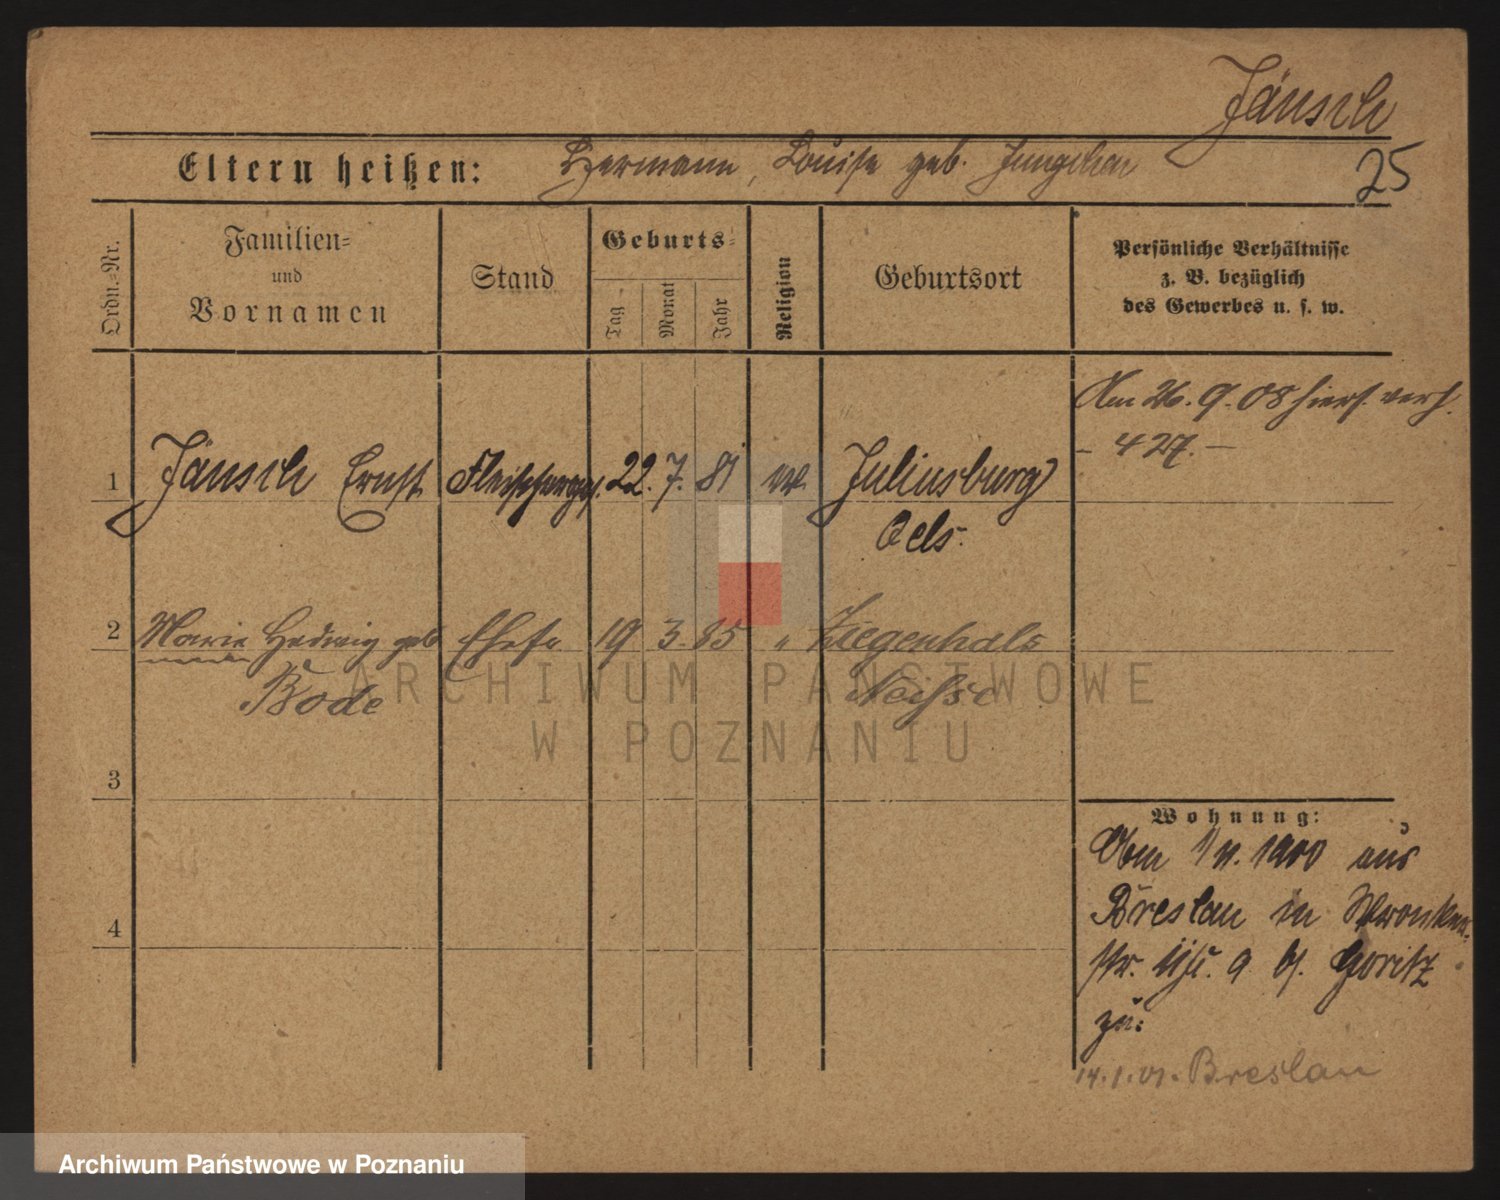 Jänsch
Eltern heißen: Hermann, Louise geb.
25
Ordn.-Nr.
Familien-
und
Vornamen
Stand
Geburts-
Tag
Monat
Jahr
Religion
Geburtsort
Persönliche Verhältnisse
z. B. bezüglich
des Gewerbes u. s. w.
Am 26. 9. 08 hiers. verh.
- 427. -
1 Jänsch Ernst Fleischerges. 22. 7. 81 ev. Juliusburg
Oels.
2 Marie Hedwig geb Ehefr 19 3. 85 " Ziegenhals
Bode Neisse
ARCHIWUM PAŃSTWOWE
W POZNANIU
3
Wohnung:
1900 aus
Breslau in Wronker-
str. 9 b/. Goritz
zu.
4
14.1.01. Breslau
Archiwum Państwowe w Poznaniu